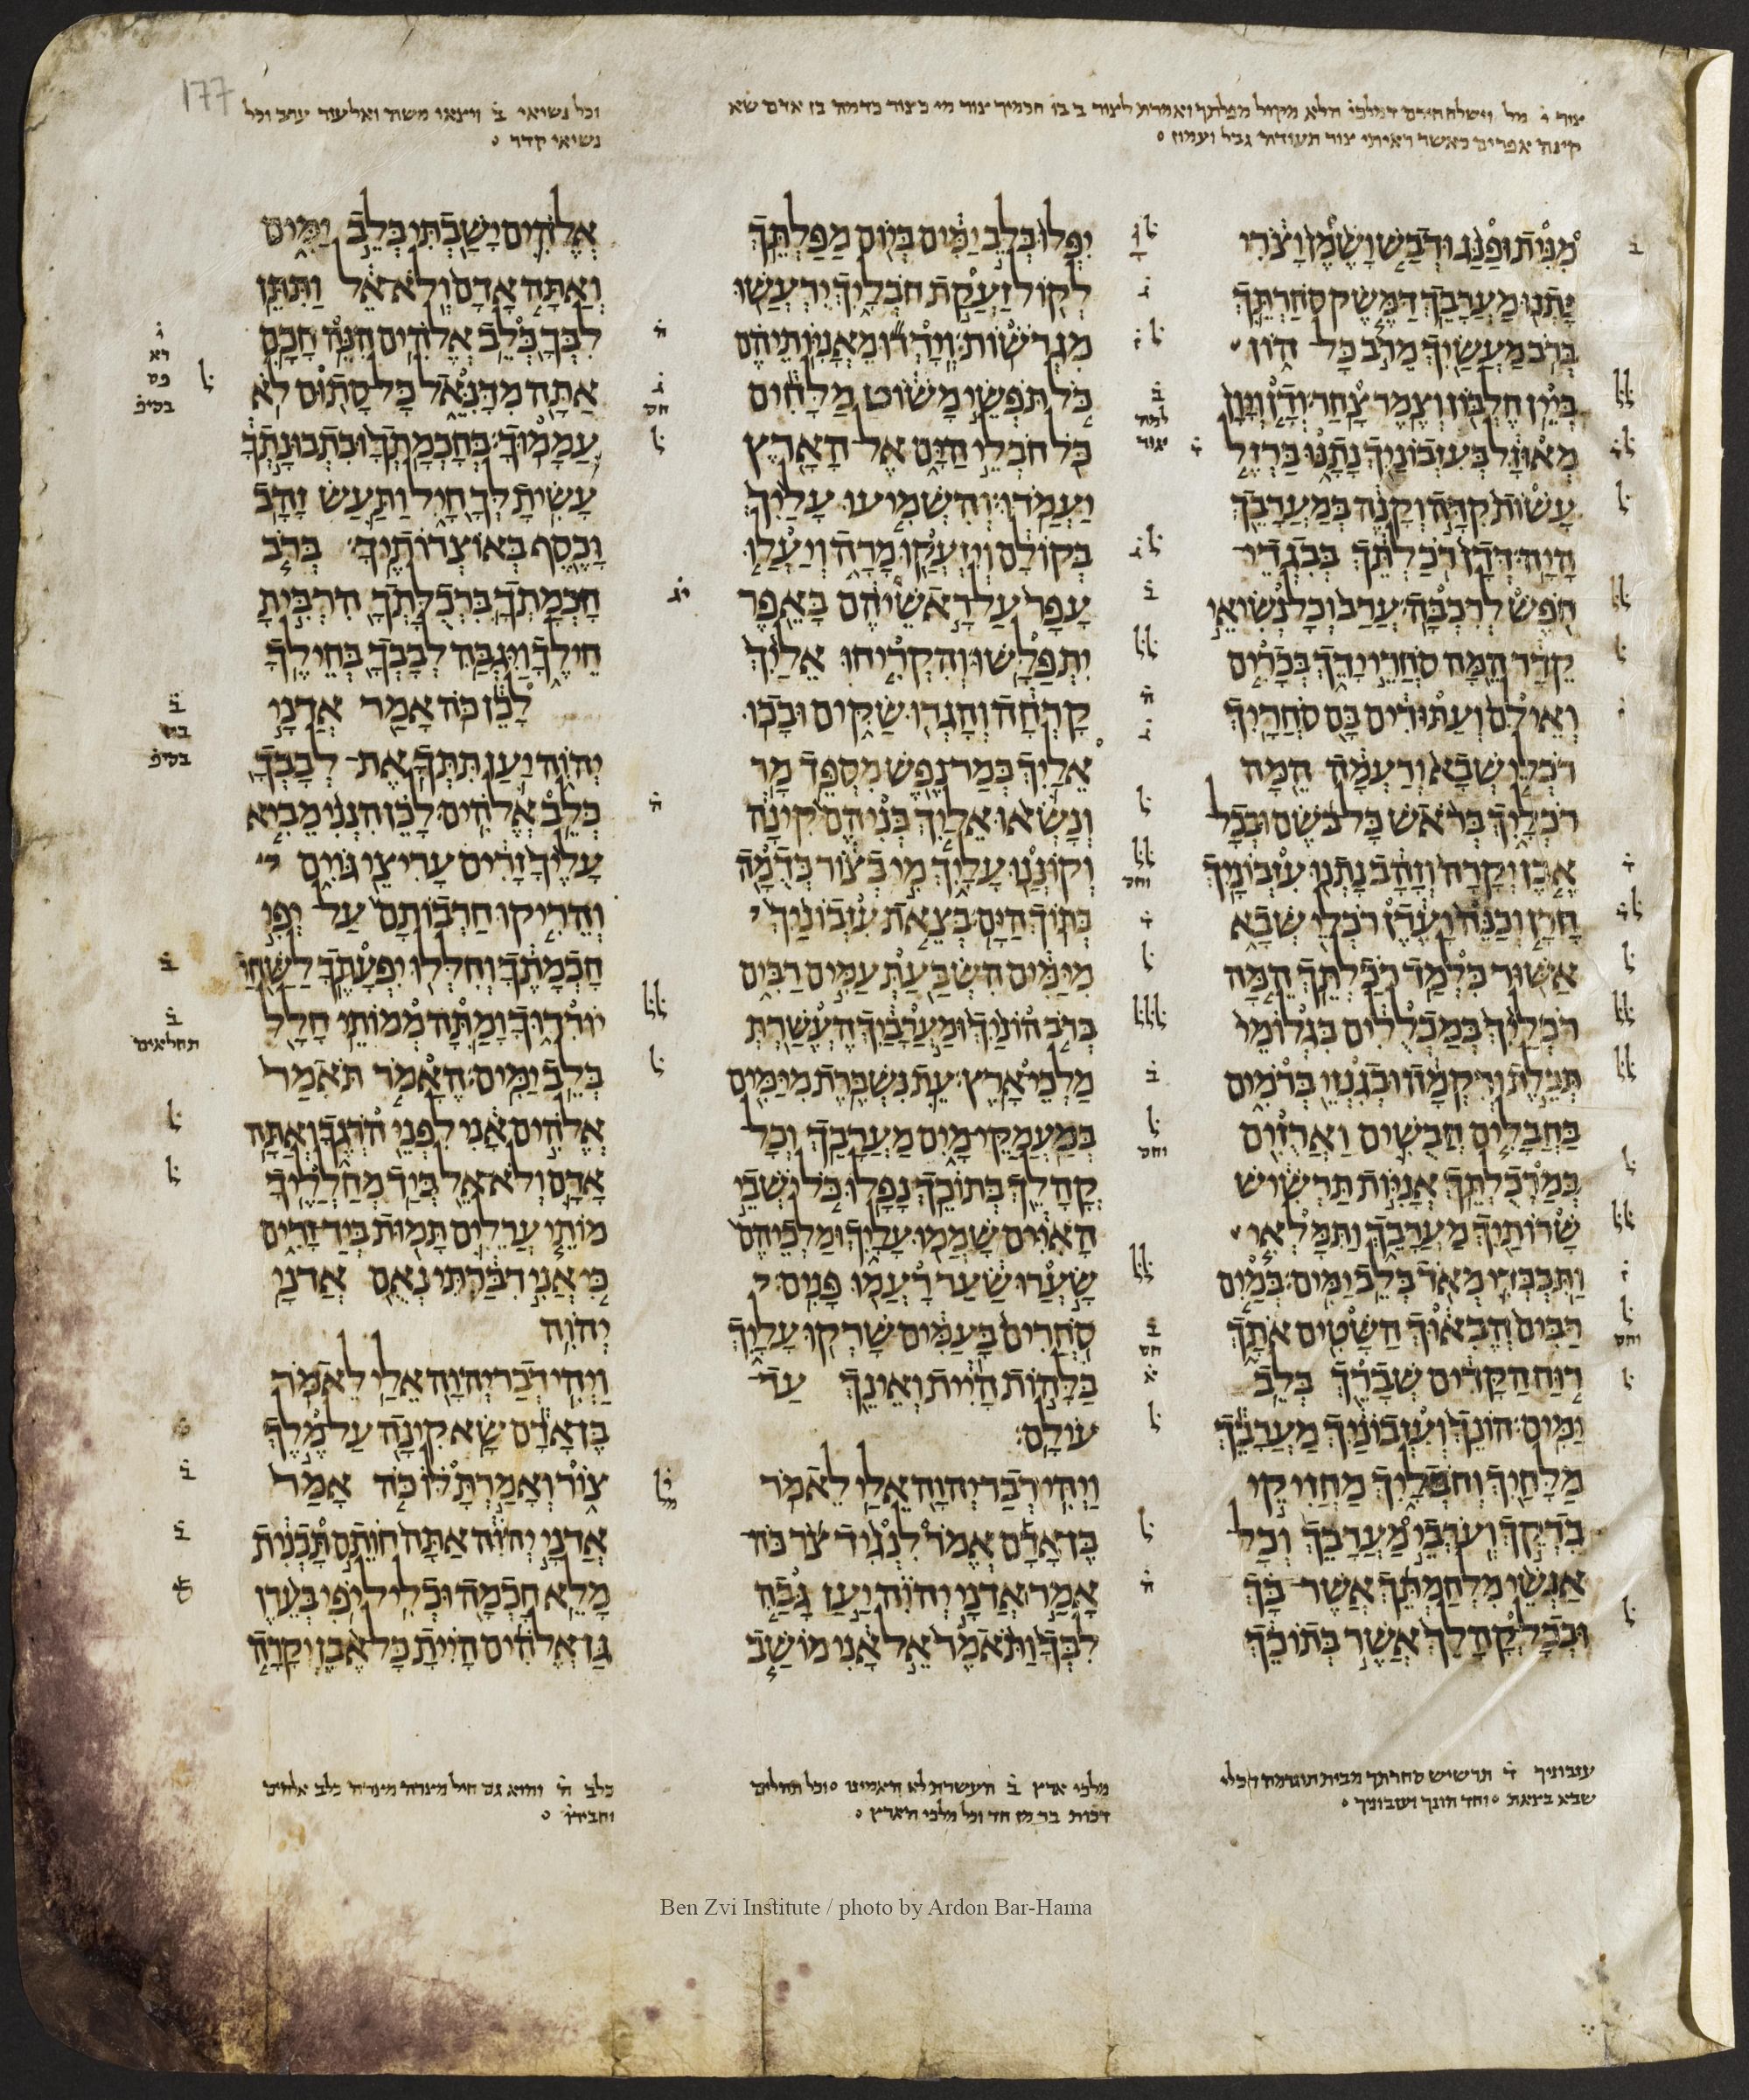 צור ו֗ מל וישלח חירם דמלכי֗ הלא מקול מפלתך ואמרת לצור ב בו חכמיך צור מי כצור כדמה בן אדם שא
קינה אפרים כאשר ראיתי צור תעודת גבל ועמון
וכל נשיאי ב֗
נשיאי קדר
מִנִּית וּפַנַּג וּדְבַשׁ וָשֶׁמֶן וָצֹרִי
נָתְנוּ מַעֲרָבֵךְ דַּמֶּשֶׂק סֹחַרְתֵּךְ
בְּרֹב מַעֲשַׂיִךְ מֵרֹב כָּל הוֹן
בְּיֵין חֶלְבּוֹן וְצֶמֶר צָחַר׃ וְדָן וְיָוָן
מְאוּזָּל בְּעִזְבוֹנַיִךְ נָתָנּוּ בַּרְזֶל
עָשׁוֹת קִדָּה וְקָנֶה בְּמַעֲרָבֵךְ
הָיָה׃ דְּדָן רֹכַלְתֵּךְ בְּבִגְדֵי
חֹפֶשׁ לְרִכְבָּה׃ עֲרַב וְכָל נְשִׂיאֵי
קֵדָר הֵמָּה סֹחֲרֵי יָדֵךְ בְּכָרִים
וְאֵילִם וְעַתּוּדִים בָּם סֹחֲרָיִךְ
רֹכְלֵי שְׁבָא וְרַעְמָה הֵמָּה
רֹכְלָיִךְ בְּרֹאשׁ כָּל בֹּשֶׂם וּבְכָל
אֶבֶן יְקָרָה וְזָהָב נָתְנוּ עִזְבוֹנָיִךְ
חָרָן וְכַנֵּה וָעֶדֶן רֹכְלֵי שְׁבָא
אַשּׁוּר כִּלְמַד רֹכַלְתֵּךְ הֵמָּה
רֹכְלַיִךְ בְּמַכְלֻלִים בִּגְלוֹמֵי
תְּכֵלֶת וְרִקְמָה וּבְגִנְזֵי בְּרֹמִים
בַּחֲבָלִים חֲבֻשִׁים וַאֲרֻזִים
בְּמַרְכֻלְתֵּךְ׃ אֳנִיּוֹת תַּרְשִׁישׁ
שָׁרוֹתַיִךְ מַעֲרָבֵךְ וַתִּמָּלְאִי
וַתִּכְבְּדִי מְאֹד בְּלֵב יַמִּים׃ בְּמַיִם
רַבִּים הֱבִאוּךְ הַשָּׁטִים אֹתָךְ
רוּחַ הַקָּדִים שְׁבָרֵךְ בְּלֵב
יַמִּים׃ הוֹנֵךְ וְעִזְבוֹנַיִךְ מַעֲרָבֵךְ
מַלָּחַיִךְ וְחֹבְלָיִךְ מַחֲזִיקֵי
בִדְקֵךְ וְעֹרְבֵי מַעֲרָבֵךְ וְכָל
אַנְשֵׁי מִלְחַמְתֵּךְ אֲשֶׁר בָּךְ
וּבְכָל קְהָלֵךְ אֲשֶׁר בְּתוֹכֵךְ
יִפְּלוּ בְּלֵב יַמִּים בְּיוֹם מַפַּלְתֵּךְ
לְקוֹל זַעֲקַת חֹבְלָיִךְ יִרְעֲשׁוּ
מִגְרֹשׁוֹת׃ וְיָרְדוּ מֵאֳנִיּוֹתֵיהֶם
כֹּל תֹּפְשֵׂי מָשׁוֹט מַלָּחִים
כֹּל חֹבְלֵי הַיָּם אֶל הָאָרֶץ
יַעֲמֹדוּ׃ וְהִשְׁמִיעוּ עָלַיִךְ
בְּקוֹלָם וְיִזְעֲקוּ מָרָה וְיַעֲלוּ
עָפָר עַל רָאשֵׁיהֶם בָּאֵפֶר
יִתְפַּלָּשׁוּ׃ וְהִקְרִיחוּ אֵלַיִךְ
קָרְחָה וְחָגְרוּ שַׂקִּים וּבָכוּ
אֵלַיִךְ בְּמַר נֶפֶשׁ מִסְפֵּד מָר
וְנָשְׂאוּ אֵלַיִךְ בְּנִיהֶם קִינָה
וְקוֹנְנוּ עָלָיִךְ מִי כְצוֹר כְּדֻמָה
בְּתוֹךְ הַיָּם׃ בְּצֵאת עִזְבוֹנַיִךְ
מִיַּמִּים הִשְׂבַּעַתְּ עַמִּים רַבִּים
בְּרֹב הוֹנַיִךְ וּמַעֲרָבַיִךְ הֶעֱשַׁרְתְּ
מַלְכֵי אָרֶץ׃ עֵת נִשְׁבֶּרֶת מִיַּמִּים
בְּמַעֲמַקֵּי מָיִם מַעֲרָבֵךְ וְכָל
קְהָלֵךְ בְּתוֹכֵךְ נָפָלוּ׃ כֹּל יֹשְׁבֵי
הָאִיִּים שָׁמְמוּ עָלָיִךְ וּמַלְכֵיהֶם
שָׂעֲרוּ שַׂעַר רָעֲמוּ פָּנִים׃
סֹחֲרִים בָּעַמִּים שָׁרְקוּ עָלָיִךְ
בַּלָּהוֹת הָיִית וְאֵינֵךְ עַד
עוֹלָם׃
וַיְהִי דְבַר יְהוָה אֵלַי לֵאמֹר
בֶּן אָדָם אֱמֹר לִנְגִיד צֹר כֹּה
אָמַר אֲדֹנָי יְהוִה יַעַן גָּבַהּ
לִבְּךָ וַתֹּאמֶר אֵל אָנִי מוֹשַׁב
אֱלֹהִים יָשַׁבְתִּי בְּלֵב יַמִּים
וְאַתָּה אָדָם וְלֹא אֵל וַתִּתֵּן
לִבְּךָ כְּלֵב אֱלֹהִים׃ הִנֵּה חָכָם
אַתָּה מִדָּנִיֵּאל כָּל סָתוּם לֹא
עֲמָמוּךָ׃ בְּחָכְמָתְךָ וּבִתְבוּנָתְךָ
עָשִׂיתָ לְּךָ חָיִל וַתַּעַשׂ זָהָב
וָכֶסֶף בְּאוֹצְרוֹתֶיךָ׃ בְּרֹב
חָכְמָתְךָ בִּרְכֻלָּתְךָ הִרְבִּיתָ
חֵילֶךָ וַיִּגְבַּהּ לְבָבְךָ בְּחֵילֶךָ
לָכֵן כֹּה אָמַר אֲדֹנָי
יְהוִה יַעַן תִּתְּךָ אֶת לְבָבְךָ
כְּלֵב אֱלֹהִים׃ לָכֵן הִנְנִי מֵבִיא
עָלֶיךָ זָרִים עָרִיצֵי גּוֹיִם
וְהֵרִיקוּ חַרְבוֹתָם עַל יְפִי
חָכְמָתֶךָ וְחִלְּלוּ יִפְעָתֶךָ׃ לַשַּׁחַת
יוֹרִדוּךָ וָמַתָּה מְמוֹתֵי חָלָל
בְּלֵב יַמִּים׃ הֶאָמֹר תֹּאמַר
אֱלֹהִים אָנִי לִפְנֵי הֹרְגֶךָ וְאַתָּה
אָדָם וְלֹא אֵל בְּיַד מְחַלְלֶיךָ
מוֹתֵי עֲרֵלִים תָּמוּת בְּיַד זָרִים
כִּי אֲנִי דִבַּרְתִּי נְאֻם אֲדֹנָי
יְהוִה
וַיְהִי דְבַר יְהוָה אֵלַי לֵאמֹר
בֶּן אָדָם שָׂא קִינָה עַל מֶלֶךְ
צוֹר וְאָמַרְתָּ לּוֹ כֹּה אָמַר
אֲדֹנָי יְהוִה אַתָּה חוֹתֵם תָּכְנִית
מָלֵא חָכְמָה וּכְלִיל יֹפִי׃ בְּעֵדֶן
גַּן אֱלֹהִים הָיִיתָ כָּל אֶבֶן יְקָרָה
עזבוניך ד֗ תרשיש סחרתך מבית תוגרמה רכלי
שבא בצאת וחד הונך ועזבוניך
מלכי ארץ ב֗ העשרת לא האמינו וכל תהלים
דכות בר מן חד וכל מלכי הארץ
כלב ה֗
Ben Zvi Institute / photo by Ardon Bar-Hama
177